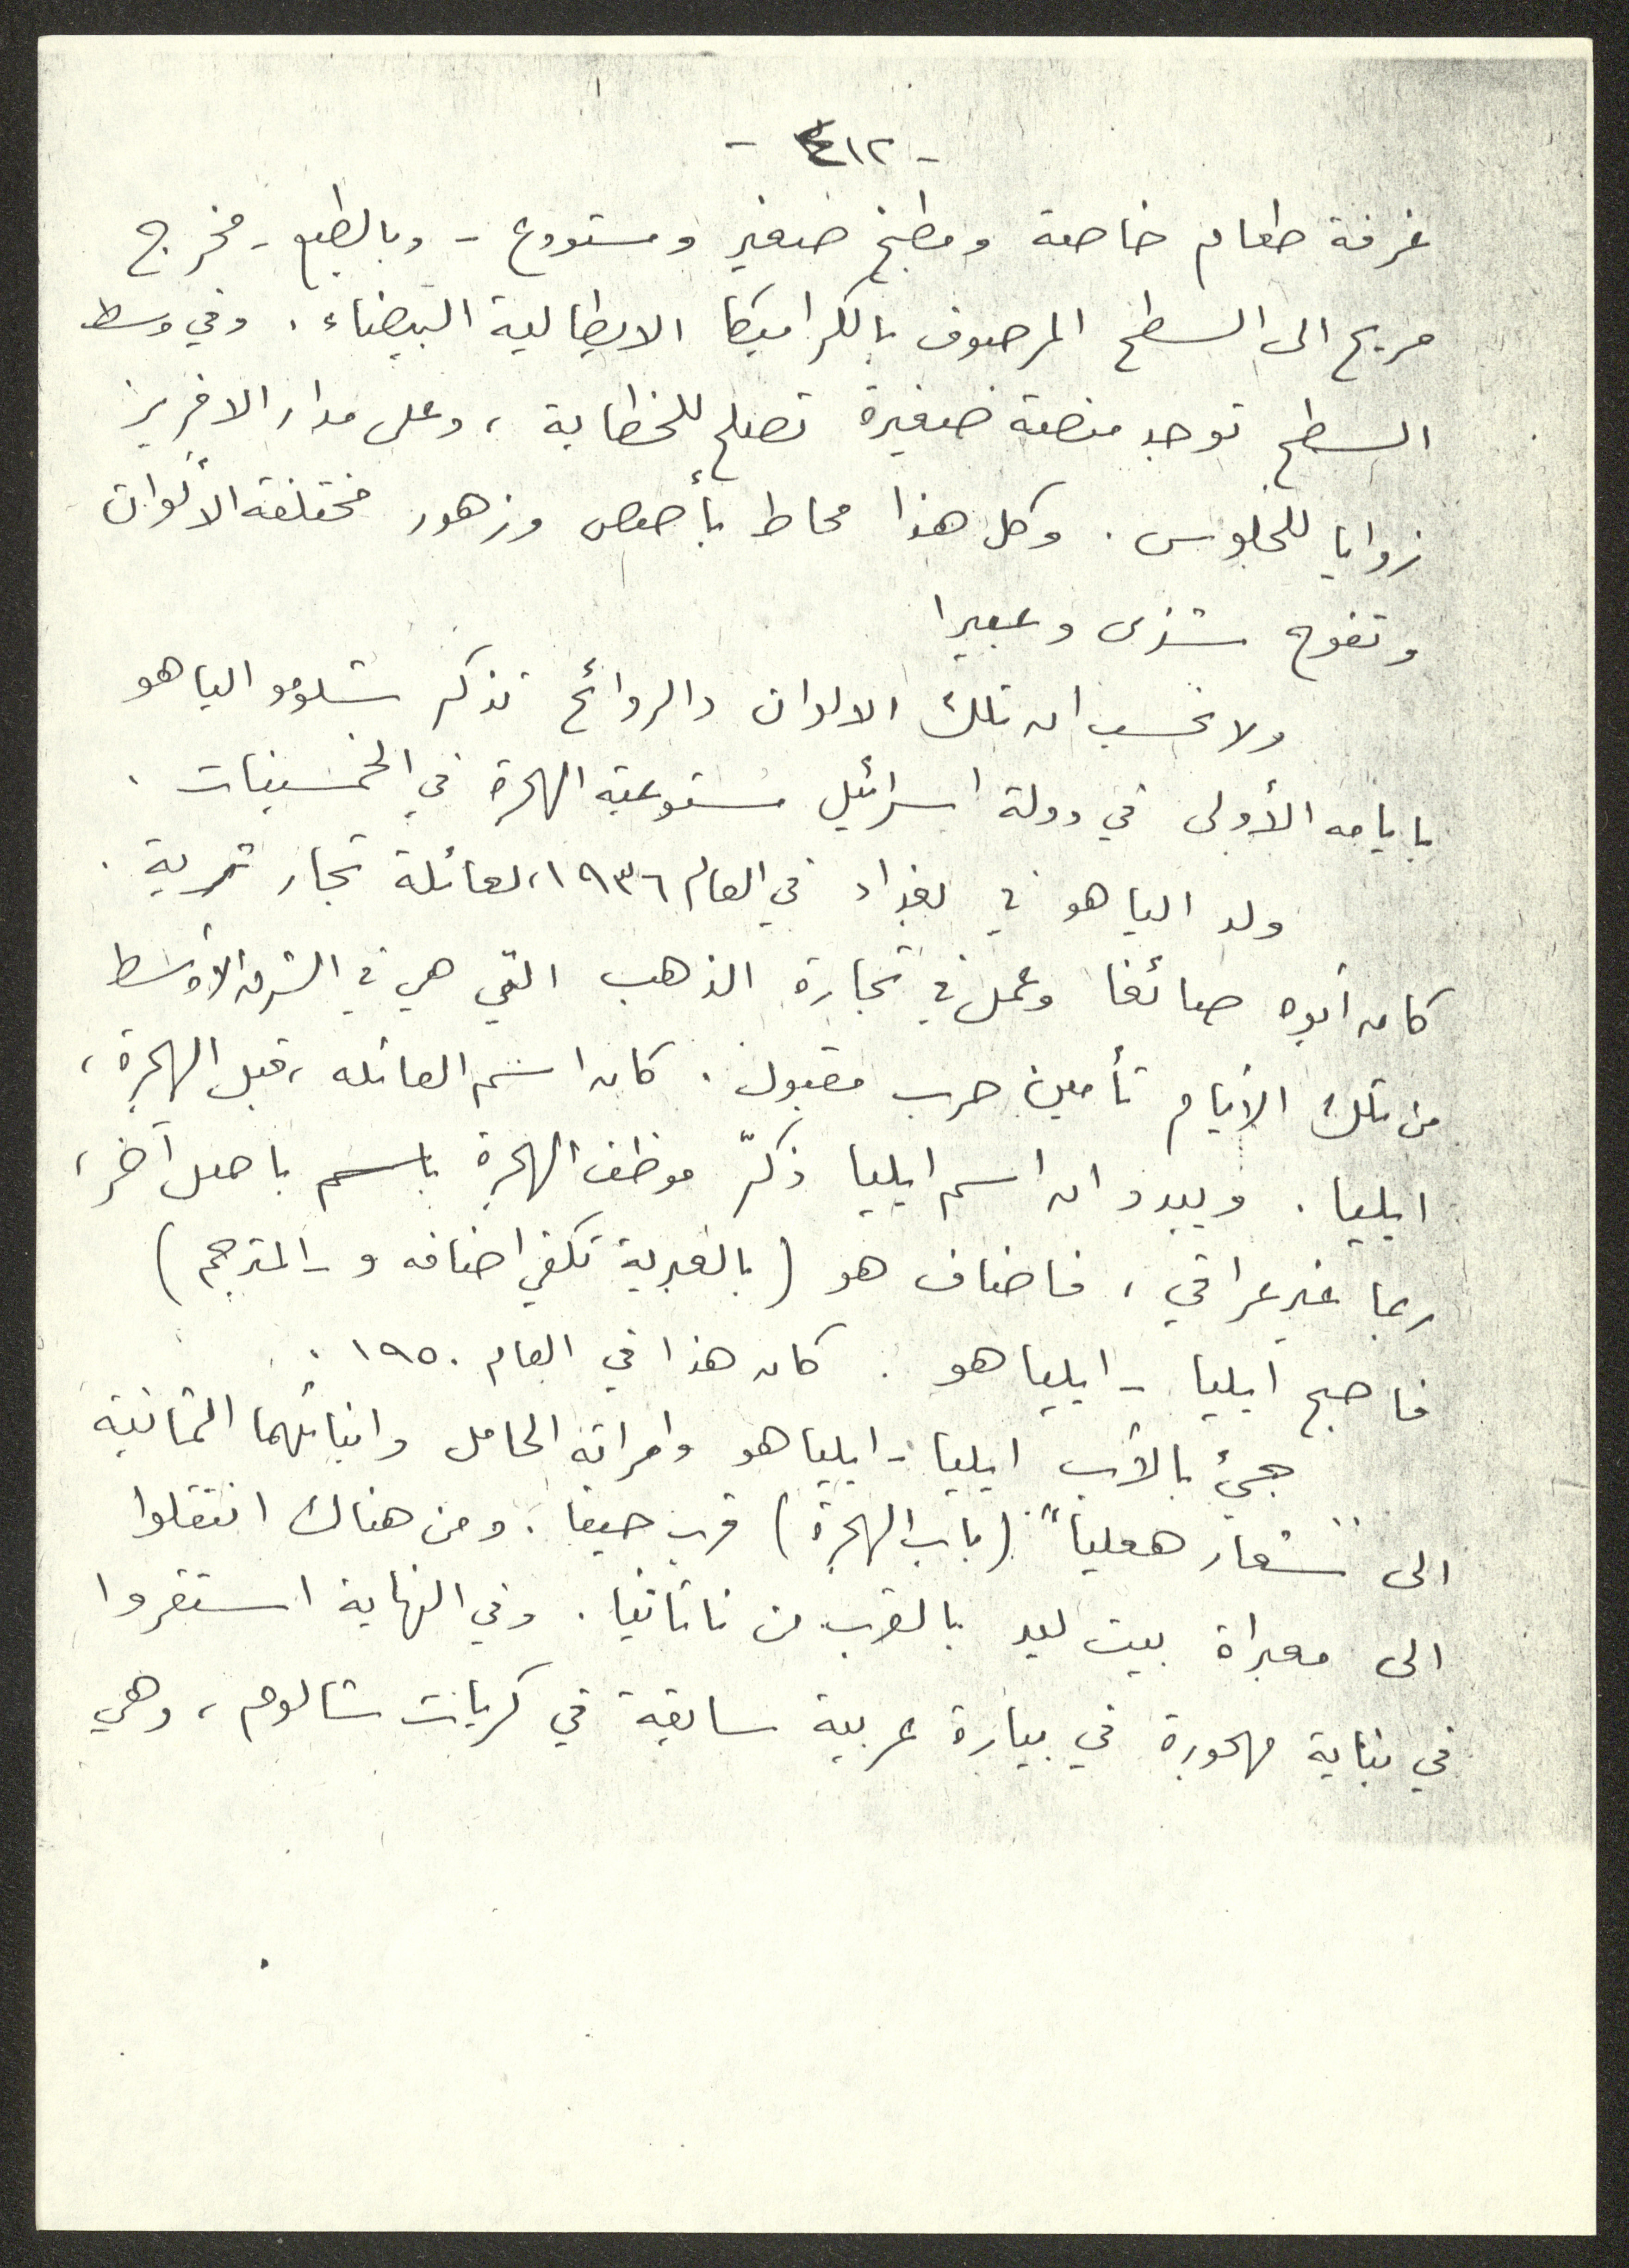 - ٤١٢ -
غرفة طعام خاصة ومطبخ صغير ومستودع - وبالطبع - مخرج
مريح الى السطح المرصوف بالكراميكا الايطالية البيضاء. وفي وسط
السطح توجد منصة صغيرة تصلح للخطابة، وعلى مدار الافريز
زوايا للجلوس. وكل هذا محاط بأصص وزهور مختلفة الألوان
وتفوح شذى وعبيرا
ولا نحسب ان تلك الالوان والروائح تذكر شلومو الياهو
بايامه الأولى في دولة اسرائيل مستوعبة الهجرة في الخمسينات.
ولد الياهو في بغداد في العام ١٩٣٦، لعائلة تجار ثرية.
كان أبوه صائغا وعمل في تجارة الذهب التي هي في الشرق الأوسط
من تلك الأيام تأمين حرب مقبول. كان اسم العائله، قبل الهجرة،
ايليا. ويبدو ان اسم ايليا ذكّر موظف الهجرة باسم باصل آخر،
ربما غير عراقي، فاضاف هو (بالعبرية تكفي اضافه و - المترجم)
فاصبح ايليا - ايلياهو. كان هذا في العام ١٩٥٠.
جيئ بالأب ايليا - ايلياهو وامراته الحامل وابنائهما الثمانية
الى "شعار هعليا" (باب الهجرة) قرب حيفا. ومن هناك انتقلوا
الى معبراة بيت ليد بالقرب من ناتانيا. وفي النهاية استقروا
في بناية مهجورة في بيارة عربية سابقة في كريات شالوم، وهي